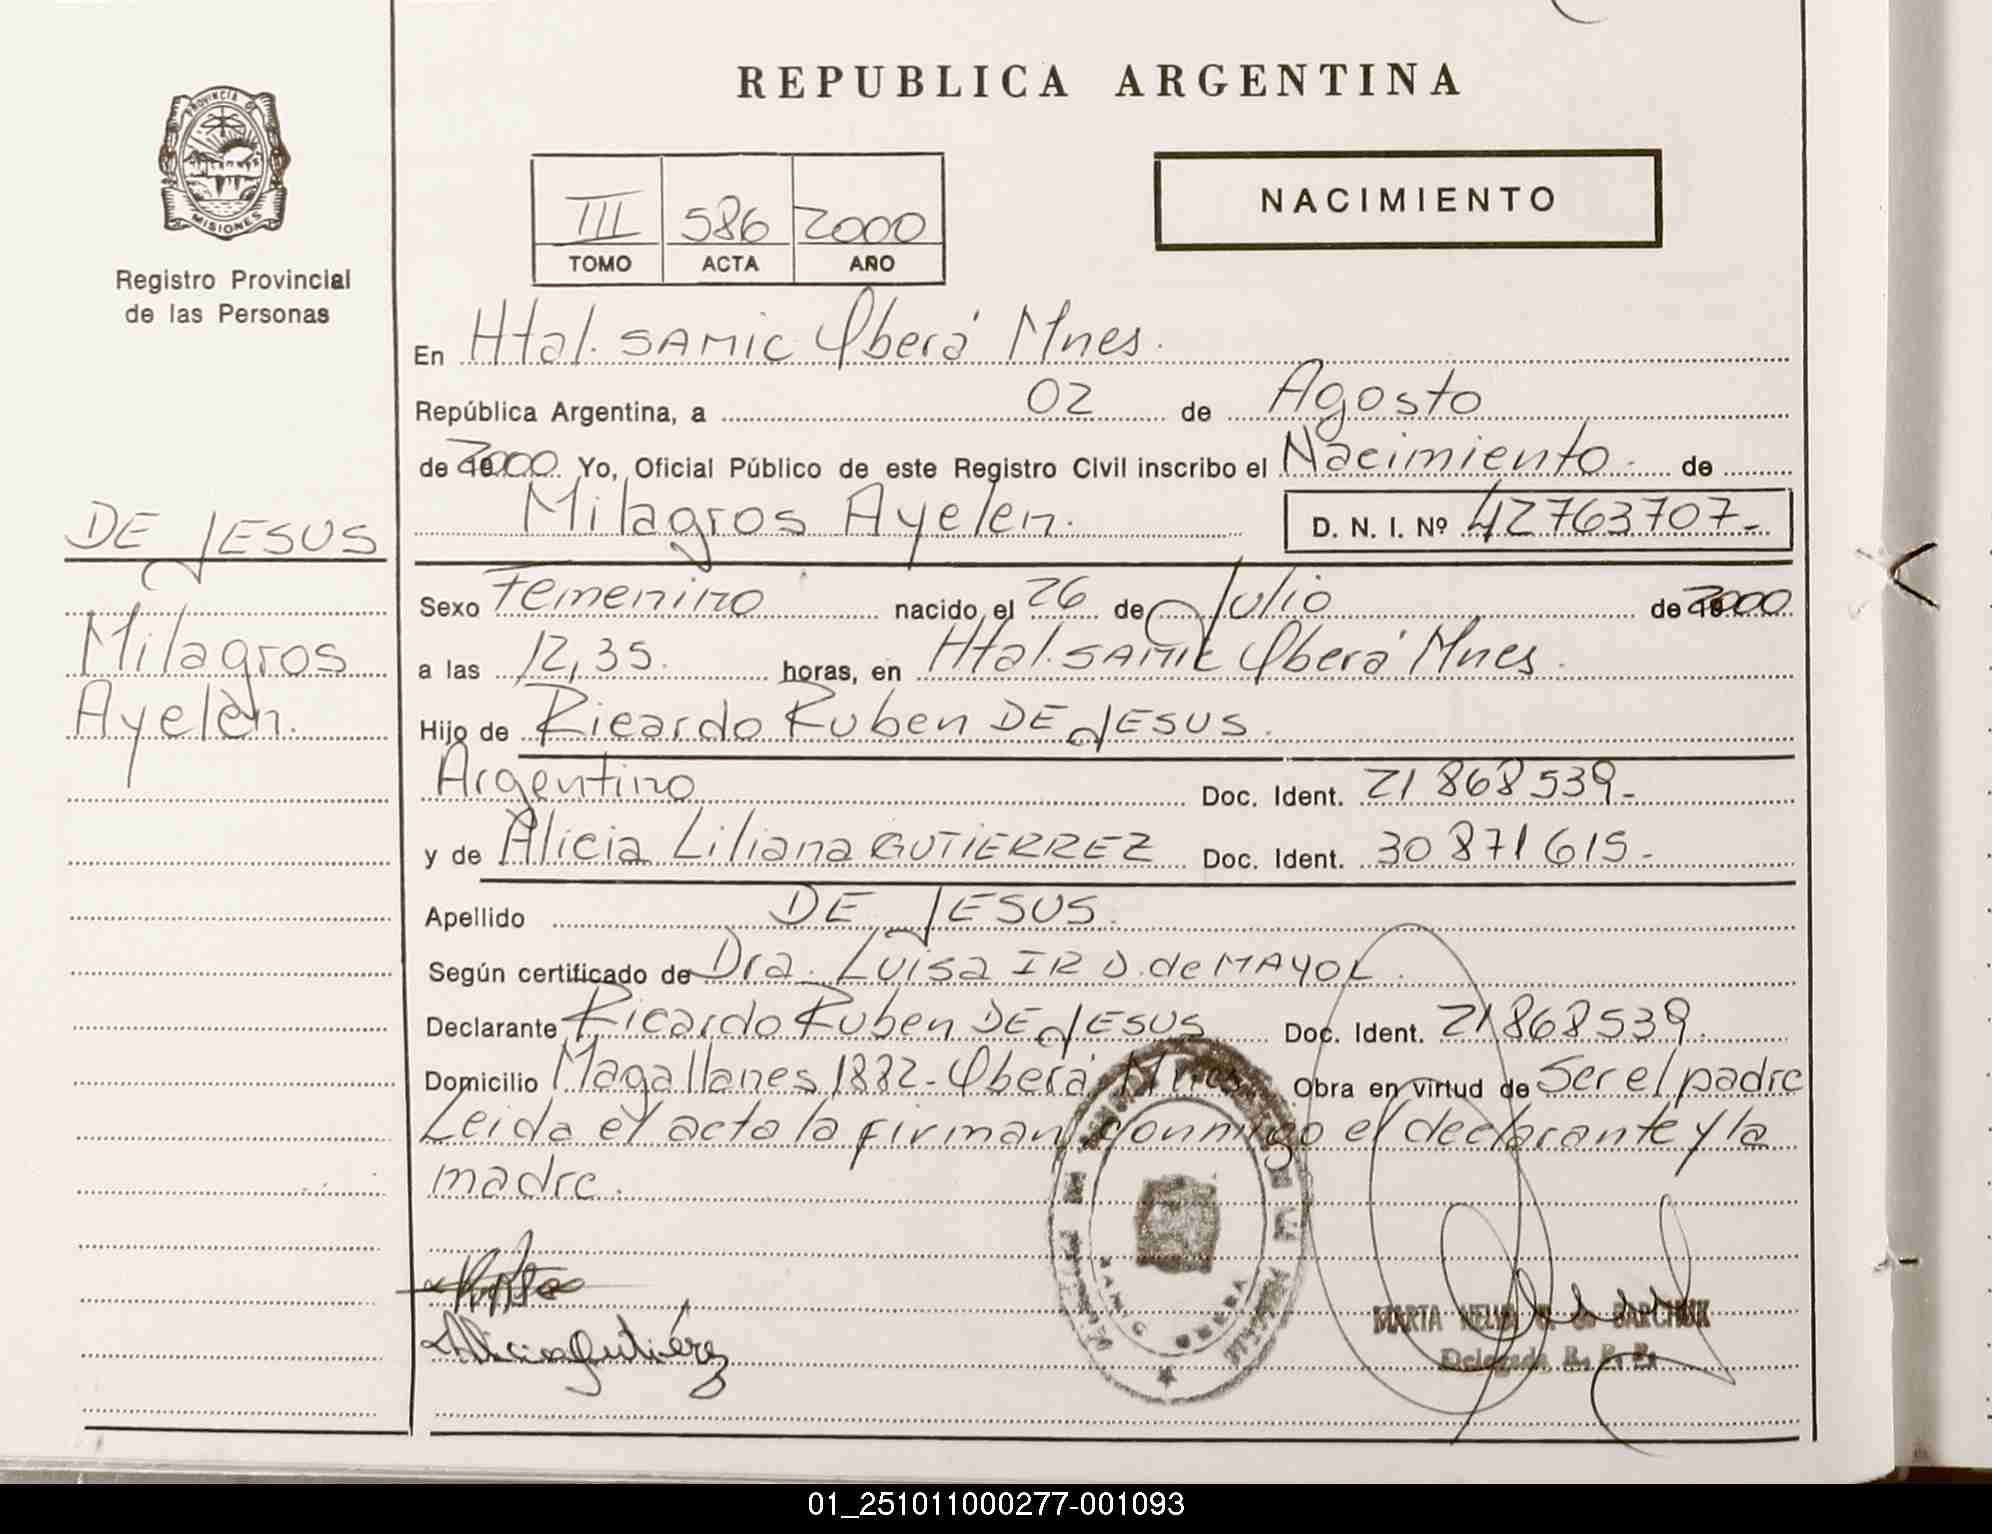 REPUBLICA ARGENTINA
PROVINCIA DE
MISIONES
Registro Provincial
de las Personas
III 586 2000
TOMO ACTA AÑO
NACIMIENTO
En Htal. SAMIC Oberá Mnes.
República Argentina, a 02 de Agosto
de 2000 Yo, Oficial Público de este Registro Civil inscribo el Nacimiento de
Milagros Ayelen. D. N. I. Nº 42763707-
DE JESUS
Milagros
Ayelen.
Sexo Femenino nacido el 26 de Julio de 2000
a las 12,35. horas, en Htal. SAMIC Oberá Mnes.
Hijo de Ricardo Ruben DE JESUS.
Argentino Doc. Ident. 21 868 539-
y de Alicia Liliana GUTIERREZ Doc. Ident. 30 871 615-
Apellido DE JESUS.
Según certificado de Dra. Luisa IR D. de MAYOL.
Declarante Ricardo Ruben DE JESUS Doc. Ident. 21868539.
Domicilio Magallanes 1882-Oberá Mnes Obra en virtud de Ser el padre
Leida el acta la firman conmigo el declarante y la
madre.
Alicia Gutiérrez
MARTA de BARCHUK
Delegada R. P. P.
01_251011000277-001093